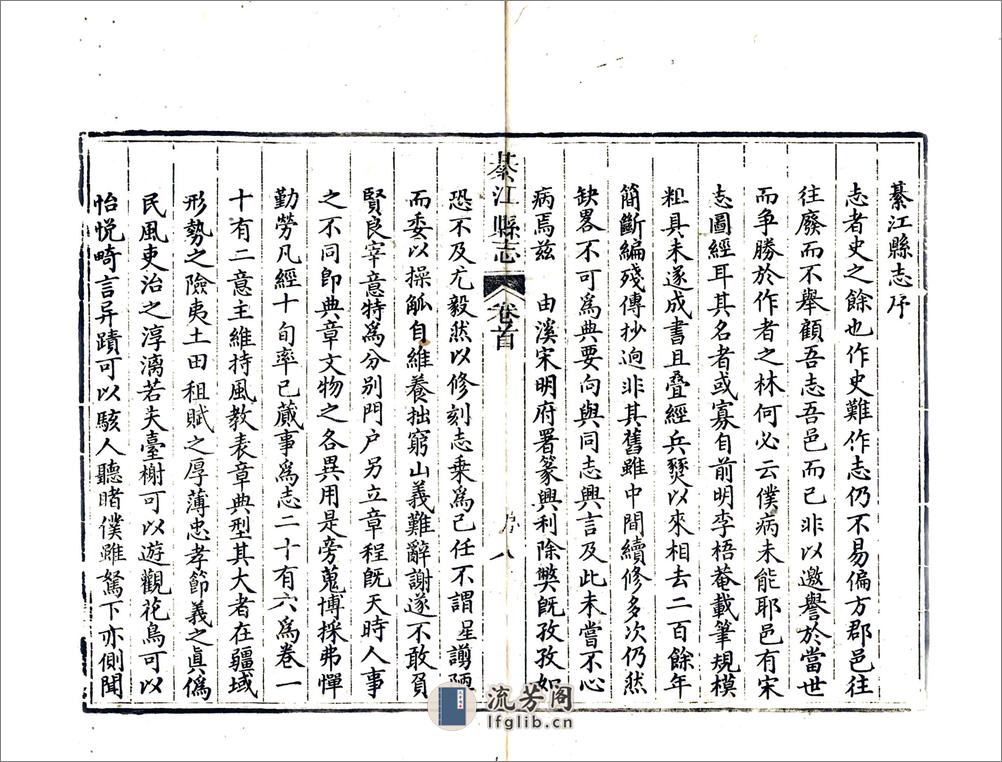 綦江縣志序
志者史之餘也作史難作志仍不易偏方郡邑往
往廢而不舉顧吾志吾邑而已非以邀譽於當世
而爭勝於作者之林何必云僕病未能耶邑有宋
志圖經耳其名者或寡自前明李梧菴載筆規模
粗具未遂成書且疊經兵燹以來相去二百餘年
簡斷編殘傳抄逈非其舊雖中間續修多次仍然
缺畧不可爲典要向與同志興言及此未嘗不心
病焉兹 由溪宋明府署篆興利除獘旣孜孜如
綦江縣志 卷首 序 八
恐不及尤毅然以修刻志乘爲己任不謂星謭陋
而委以操觚自維養拙窮山義難辭謝遂不敢負
賢良宰意特爲分别門户另立章程旣天時人事
之不同卽典章文物之各異用是旁蒐博採弗憚
勤勞凡經十旬率已蕆事爲志二十有六爲卷一
十有二意主維持風教表章典型其大者在疆域
形勢之險夷土田租賦之厚薄忠孝節義之眞僞
民風吏治之淳漓若夫臺榭可以遊觀花鳥可以
怡悅畸言异蹟可以駭人聽睹僕雖駑下亦側聞
流芳阁
lfglib.cn